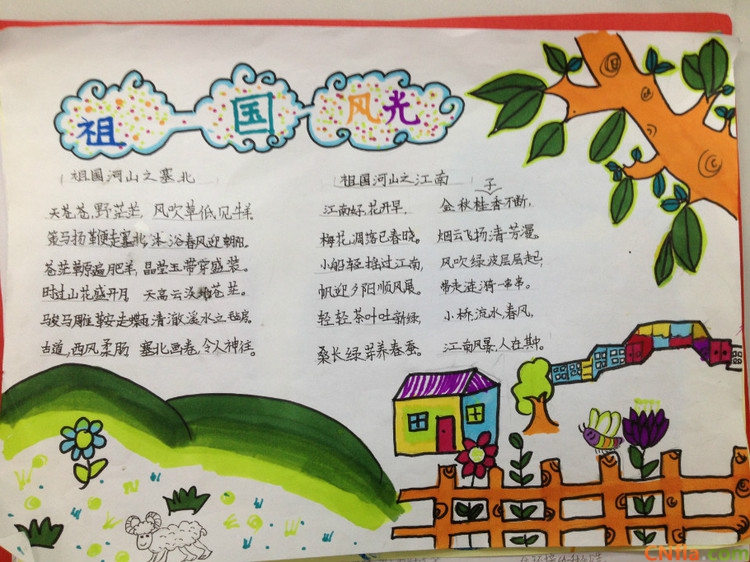 祖国风光
祖国河山之塞北
天苍苍,野茫茫,风吹草低见牛羊
策马扬鞭走塞北,沐浴春风迎朝阳。
苍茫草原遍肥羊,晶莹玉带穿盛装。
时过山花盛开月 天高云淡苍茫。
骏马雕鞍走 清澈溪水立毡房。
古道,西风柔肠 塞北画卷,令人神往。
祖国河山之江南
江南好,花开早, 金秋桂子香不断,
梅花凋落已春晓。 烟云飞扬清芳漫。
小船轻摇过江南, 风吹绿波层层起,
帆迎夕阳顺风晨。 带走涟漪一串串。
轻轻茶叶吐新绿, 小桥,流水,春风,
桑长绿芽养春蚕。 江南风景,人在其中。
CNfla.com